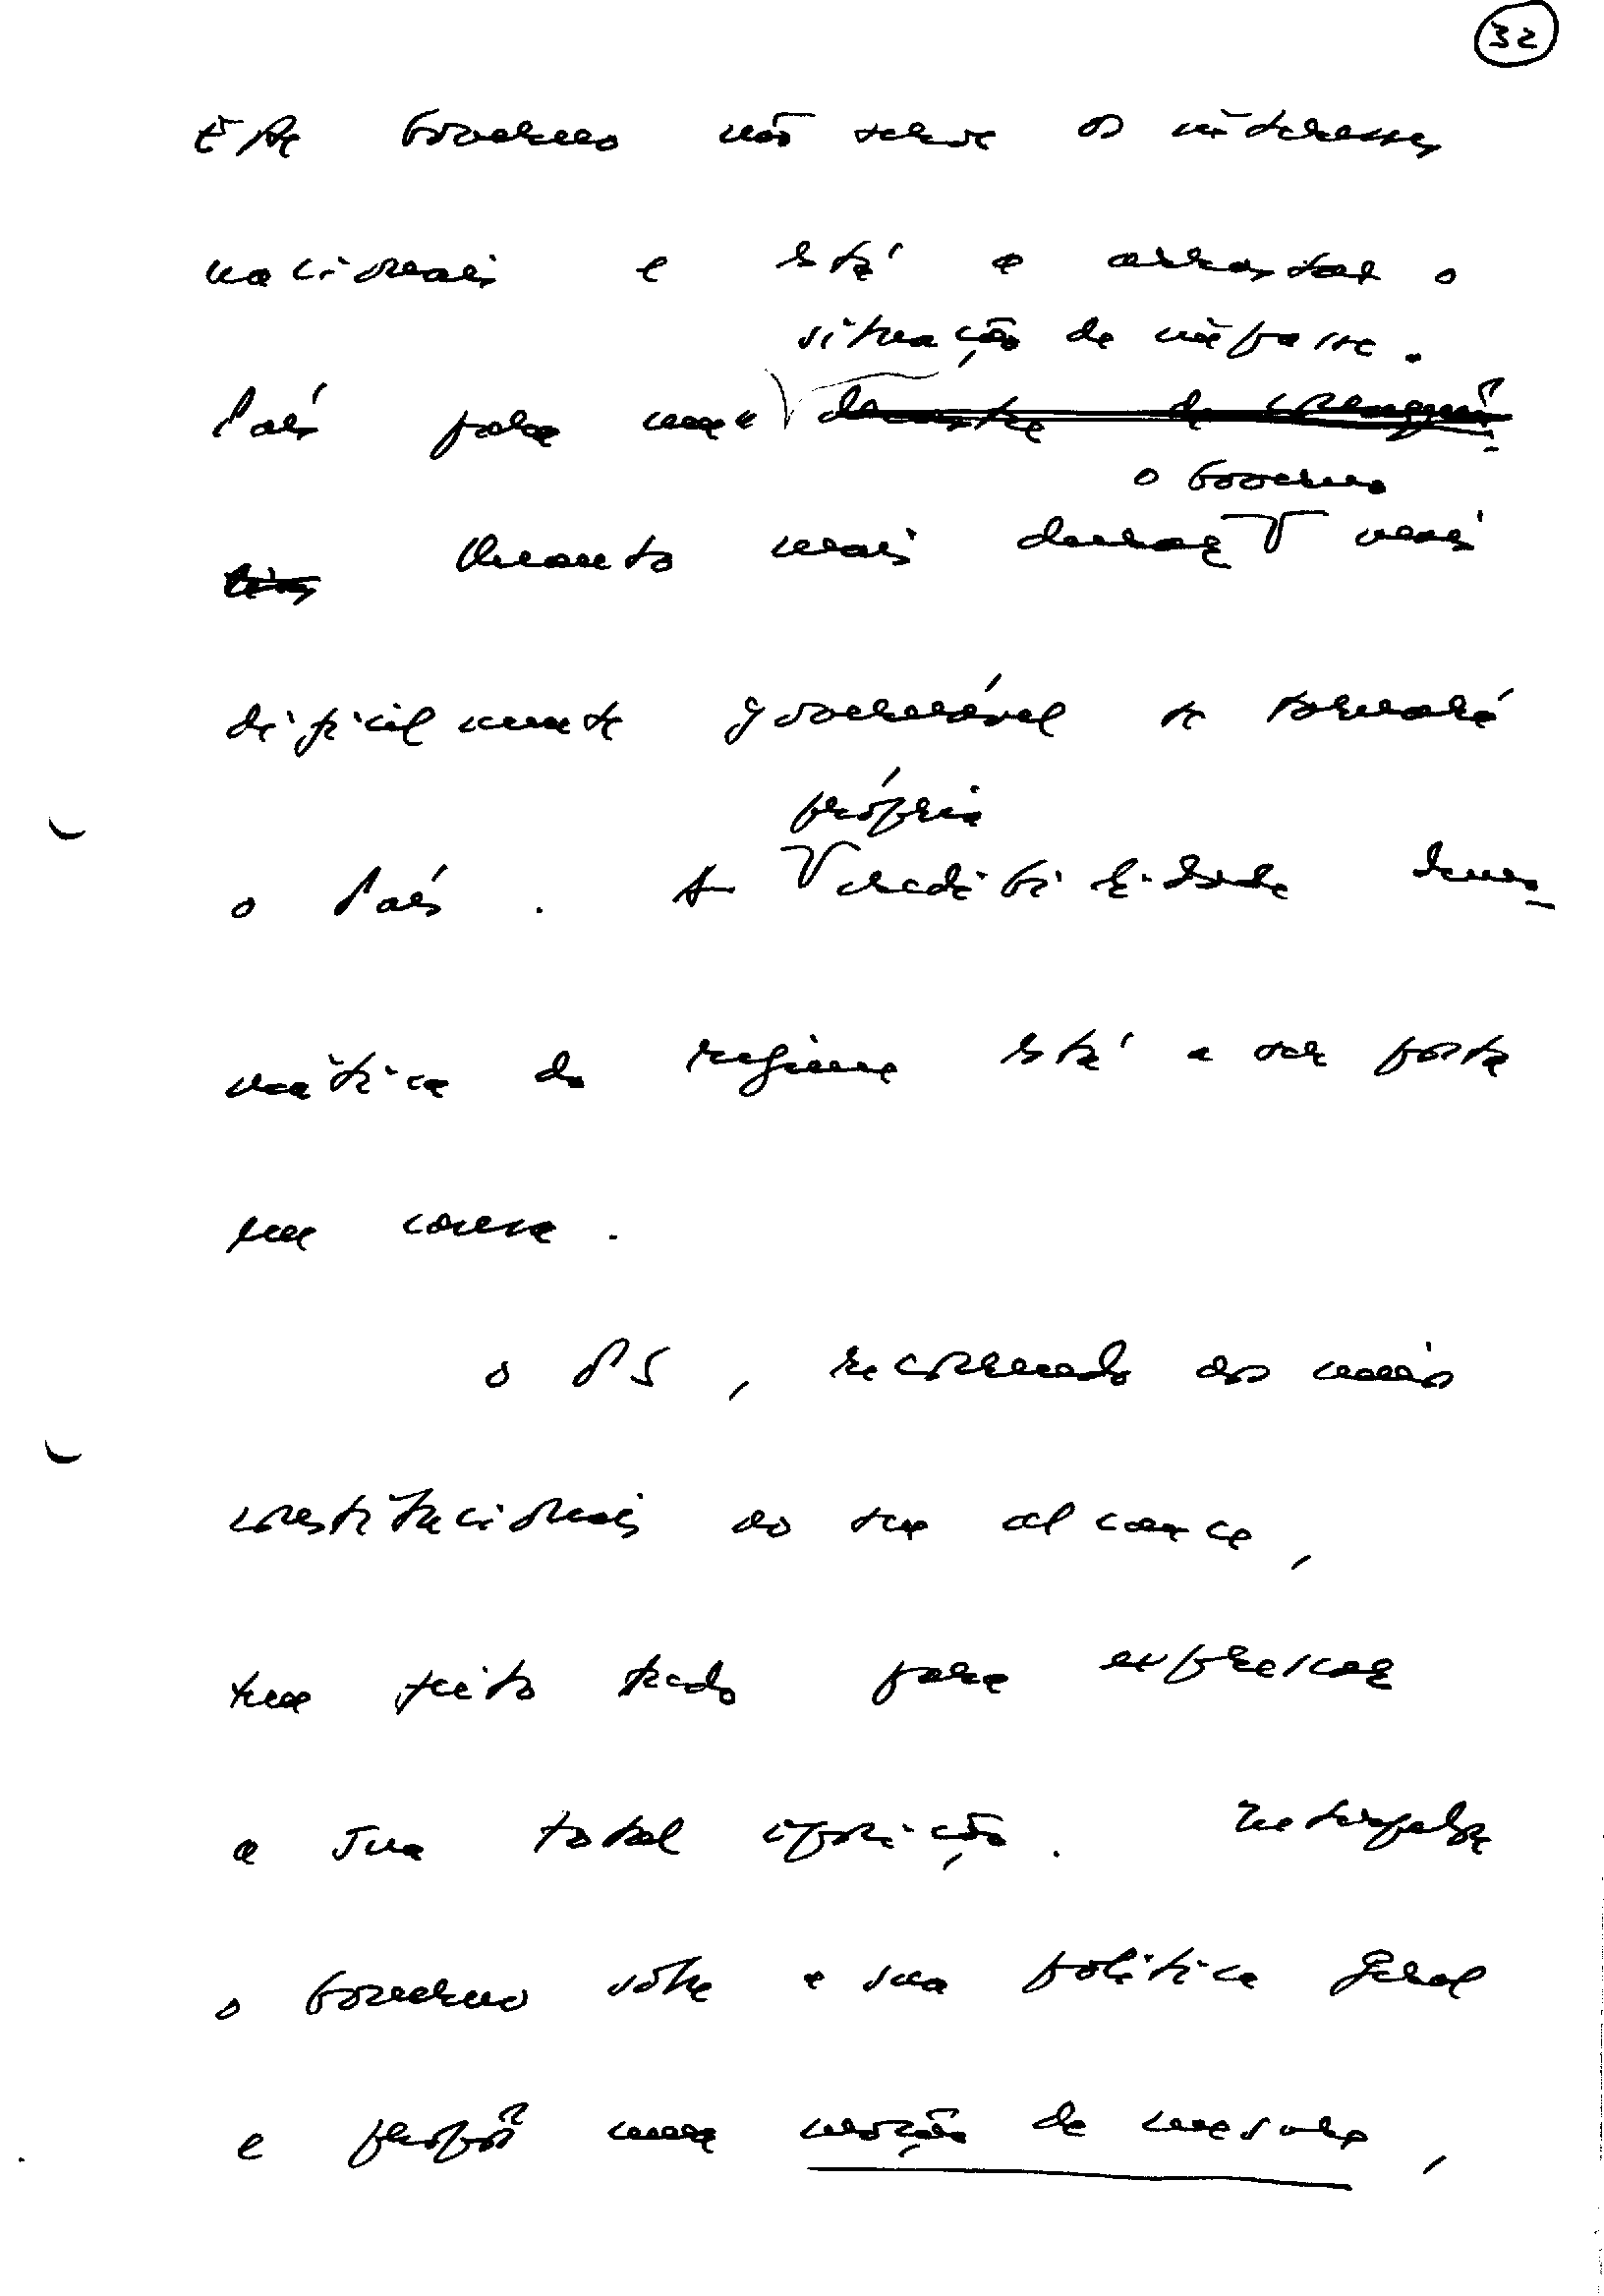 32
Este Governo não serve os interesses
nacionais e está a arrastar o
situação de impasse.
País para uma
o Governo
Quanto mais durar mais
dificilmente governável se tornará
o País. A própria credibilidade demo-
crática do regime está a ser posta
em causa.
O PS, recorrendo aos meios
constitucionais ao seu alcance,
tem feito tudo para expressar
a sua total oposição. Interpela
o Governo sobre a sua política geral
e propõe uma moção de censura,